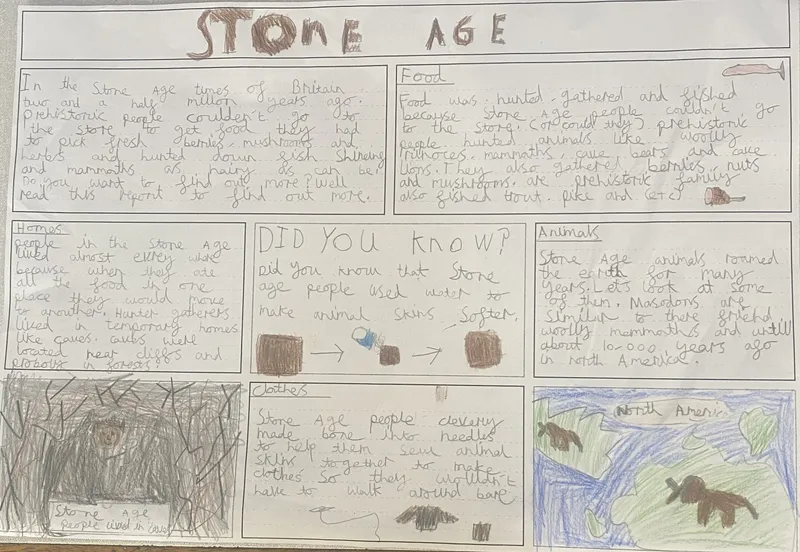 STONE AGE
In the Stone Age times of Britain
two and a half million years ago.
Prehistoric people couldn't go to
the store to get food they had
to pick fresh berries, mushrooms and
herbs and hunted down fish
and mammoths as hairy as can be.
Do you want to find out more? Well
read this report to find out more.
Food
Food was hunted, gathered and fished
because Stone Age people couldn't go
to the store. (or could they?) prehistoric
people hunted animals like woolly
mammoths, cave bears and cave
lions. They also gathered berries, nuts
and mushrooms. are prehistoric family
also fished trout, pike and (etc)
Homes
people in the Stone Age
lived almost every where
because when they ate
all the food in one
place they would move
to another. Hunter gatherers
lived in temporary homes
like caves. caves were
located near cliffs and
in forests?
DID YOU KNOW?
Did you know that Stone
age people used water to
make animal skins softer.
Animals
Stone Age animals roamed
the earth for many
years. Lets look at some
of them. Masodons are
similar to there friend
woolly mammoths and untill
about 10-000 years ago
in north America.
Stone Age
people lived in caves
Clothes
Stone Age people clevery
made bone into needles
to help them sew animal
skins together to make
clothes so they wouldn't
have to walk around bare
North America